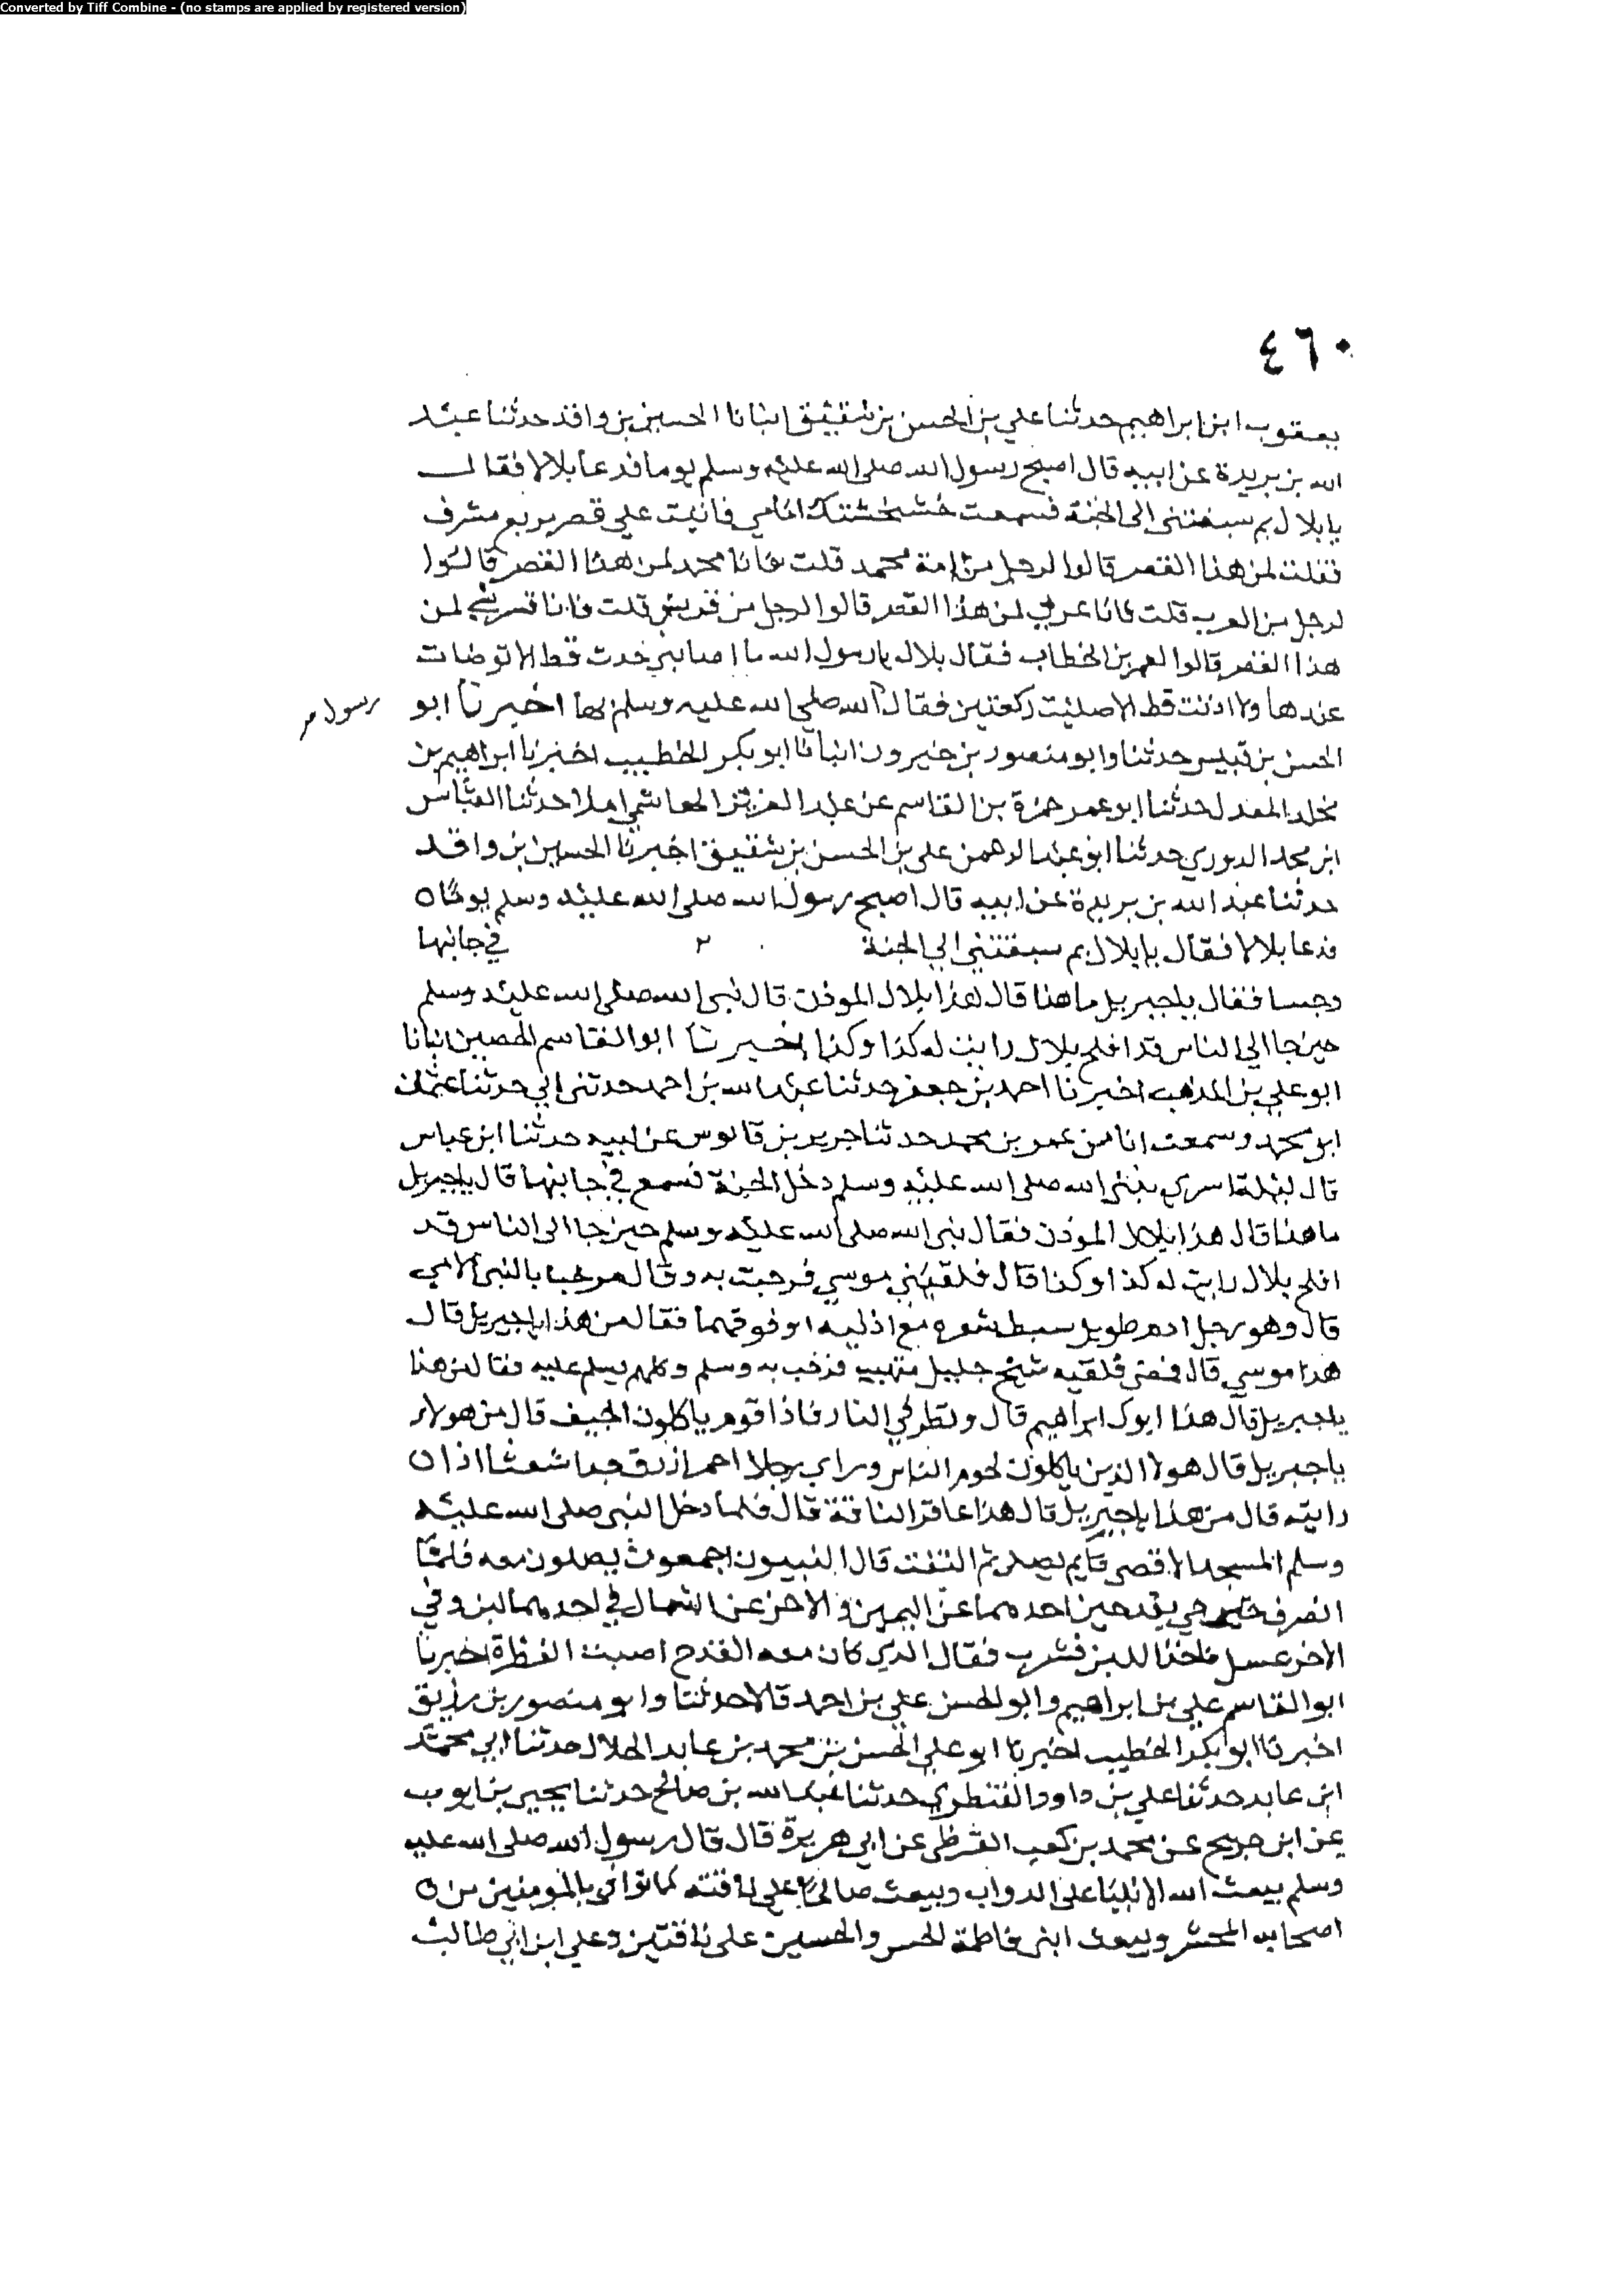 Converted by Tiff Combine - (no stamps are applied by registered version)
٤٦٠
يعقوب ابن ابراهيم حدثنا علي بن الحسن بن شقيق انبانا الحسين بن واقد حدثنا عبد
الله بن بريدة عن ابيه قال اصبح رسول الله صلى الله عليه وسلم يوما فدعا بلالا فقال
يا بلال بم سبقتني الى الجنة فسمعت خشخشتك امامي فاتيت علي قصر مربع مشرف
فقلت لمن هذا القصر قالوا لرجل من امة محمد قلت فانا محمد لمن هذا القصر قالوا
لرجل من العرب قلت فانا عربي لمن هذا القصر قالوا لرجل من قريش قلت فانا قرشي لمن
هذا القصر قالوا لعمر بن الخطاب فقال بلال يا رسول الله ما اصابني حدث قط الا توضات
عندها ولا اذنت قط الا صليت ركعتين فقال الله صلى الله عليه وسلم بها اخبرنا ابو
رسول
الحسن بن قبيس حدثنا وابو منصور بن خيرون انبانا ابو بكر الخطيب اخبرنا ابراهيم بن
مخلد المعدل حدثنا ابو عمر حمزة بن القاسم عن عبد العزيز الهاشمي املا حدثنا العباس
ابن محمد الدوري حدثنا ابو عبد الرحمن علي بن الحسن بن شقيق اخبرنا الحسين بن واقد
حدثنا عبد الله بن بريدة عن ابيه قال اصبح رسول الله صلى الله عليه وسلم يوما
فدعا بلالا فقال يا بلال بم سبقتني الي الجنة ٢ في جانبها
وجسا فقال يا جبريل ما هذا قال هذا بلال الموذن قال نبي الله صلى الله عليه وسلم
حين جا الي الناس قد افلح بلال رايت له كذا وكذا اخبرنا ابو القاسم الحصين انبانا
ابو علي بن المذهب اخبرنا احمد بن جعفر حدثنا عبد الله بن احمد حدثني ابي حدثنا عثمان
ابو محمد وسمعت انا من عمر بن محمد حدثنا جرير بن قابوس عن ابيه حدثنا ابن عباس
قال ليلة اسري بنبي الله صلى الله عليه وسلم دخل الجنة فسمع في جانبها قال يا جبريل
ما هذا قال هذا بلال الموذن فقال نبي الله صلى الله عليه وسلم حين جا الى الناس قد
افلح بلال رايت له كذا وكذا قال فلقيني موسي فرحبت به وقال مرحبا بالنبي الامي
قال وهو رجل ادم طويل سبط شعره مع اذنيه او فوقهما فقال من هذا يا جبريل قال
هذا موسي قال فمضى فلقيه شيخ جليل متهيب فرحب به وسلم وكلهم يسلم عليه فقال من هذا
يا جبريل قال هذا ابوك ابراهيم قال ونظر في النار فاذا قوم ياكلون الجيف قال من هولاء
يا جبريل قال هولا الذين ياكلون لحوم الناس وراي رجلا احمر ازرق جعدا شعثا اذا
رايته قال من هذا يا جبريل قال هذا عاقر الناقة قال فلما دخل النبي صلى الله عليه
وسلم المسجد الاقصى قايم يصلي ثم التفت قال النبيون اجمعون يصلون معه فلما
انصرف جي بقدحين احدهما عن اليمين والاخر عن الشمال في احدهما لبن وفي
الاخر عسل فاخذ اللبن فشرب فقال الذي كان معه القدح اصبت الفطرة اخبرنا
ابو القاسم علي بن ابراهيم وابو الحسن علي بن احمد قالا حدثنا وابو منصور بن رزيق
اخبرنا ابو بكر الخطيب اخبرنا ابو علي الحسن بن محمد بن عابد الخلال حدثنا ابي محمد
ابن عابد حدثنا علي بن داوود القنطري حدثنا عبد الله بن صالح حدثنا يحيى بن ايوب
عن ابن جريح عن محمد بن كعب القرظي عن ابي هريرة قال قال رسول الله صلى الله عليه
وسلم يبعث الله الانبيا على الدواب ويبعث صالحا على ناقته كما توافي بالمومنين من
اصحابه المحشر ويبعث ابني فاطمة الحسن والحسين على ناقتين وعلي ابن ابي طالب